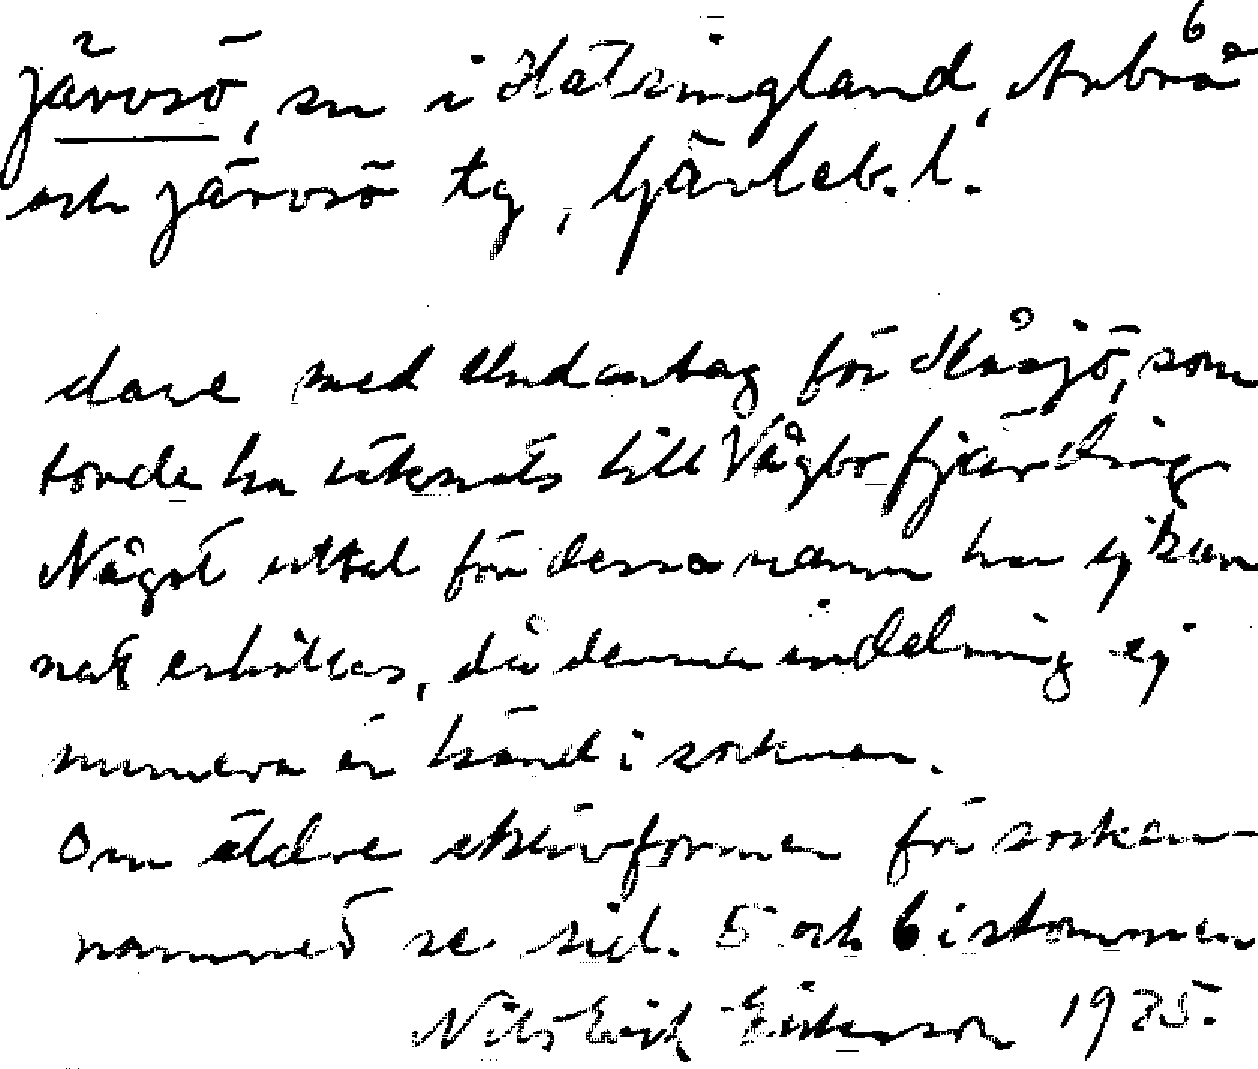 6
Järvsö, sn i Hälsingland, Arbrå
och Järvsö tg, Gävleb. l.
dare med undantag för Kåsjö, som
torde ha räknats till Vågbo fjärding
Något uttal för dessa namn har ej kun
nat erhållas, då denna indelning ej
numera är känd i socknen.
Om äldre skrivformer för socken
namnet se sid. 5 och 6 i stommen
Nils Erik Eriksson 1935.